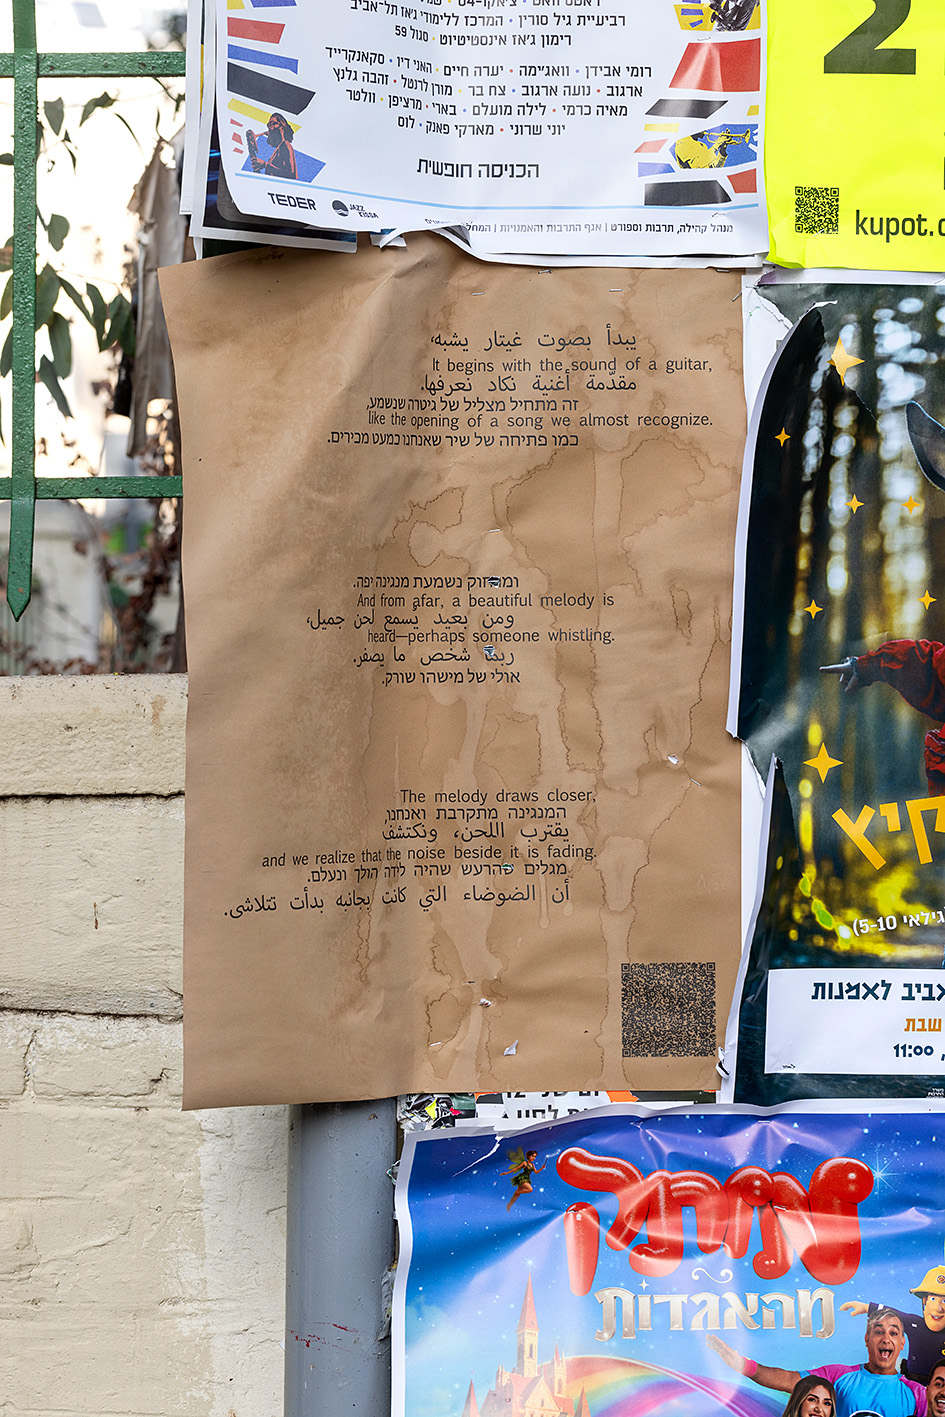 רביעיית גיל סורין • המרכז ללימודי ג׳אז תל־אביב
רימון ג׳אז אינסטיטיוט • סגול 59
רומי אבידן • וואג׳ימה • יערה חיים • האני דיו • סקאנקרייד
ארגוב • נועה ארגוב • צח בר • מורן לרנטל • זהבה גלנץ
מאיה כרמי • לילה מועלם • בארי • מרציפן • וולטר
יוני שרוני • מארקי פאנק • לוס
הכניסה חופשית
TEDER
JAZZ KISSA
מנהל קהילה, תרבות וספורט | אגף התרבות והאמנויות |
2
kupot.c
يبدأ بصوت غيتار يشبه،
It begins with the sound of a guitar,
مقدّمة أغنية نكاد نعرفها.
זה מתחיל מצליל של גיטרה שנשמע,
like the opening of a song we almost recognize.
כמו פתיחה של שיר שאנחנו כמעט מכירים.
ומרחוק נשמעת מנגינה יפה.
And from afar, a beautiful melody is
ومن بعيد يُسمع لحن جميل،
heard—perhaps someone whistling.
ربمّا شخص ما يصفر.
אולי של מישהו שורק.
The melody draws closer,
המנגינה מתקרבת ואנחנו,
يقترب اللحن، ونكتشف
and we realize that the noise beside it is fading.
מגלים שהרעש שהיה לידה הולך ונעלם.
أن الضوضاء التي كانت بجانبه بدأت تتلاشى.
קיץ
גילאי 5-10)
אביב לאמנות
שבת
11:00
ממתק
מהאגדות